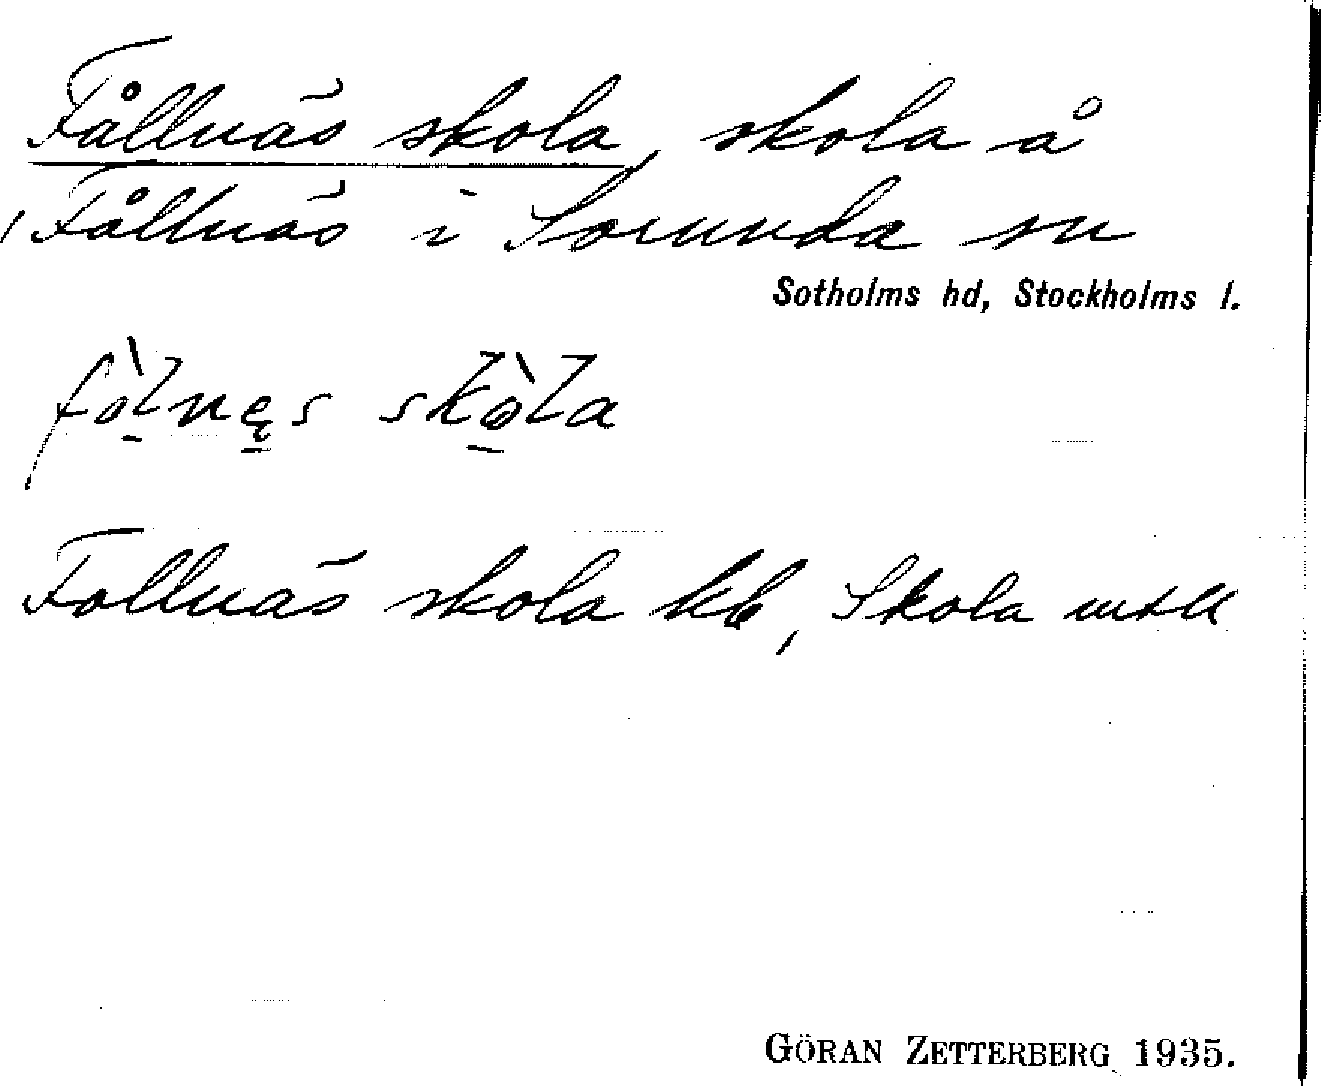 Fållnäs skola, skola å
Fållnäs i Sorunda sn
Sotholms hd, Stockholms l.
fò̱lnę̱s skò̱la
Follnäs skola kb, Skola mtll
GÖRAN ZETTERBERG 1935.